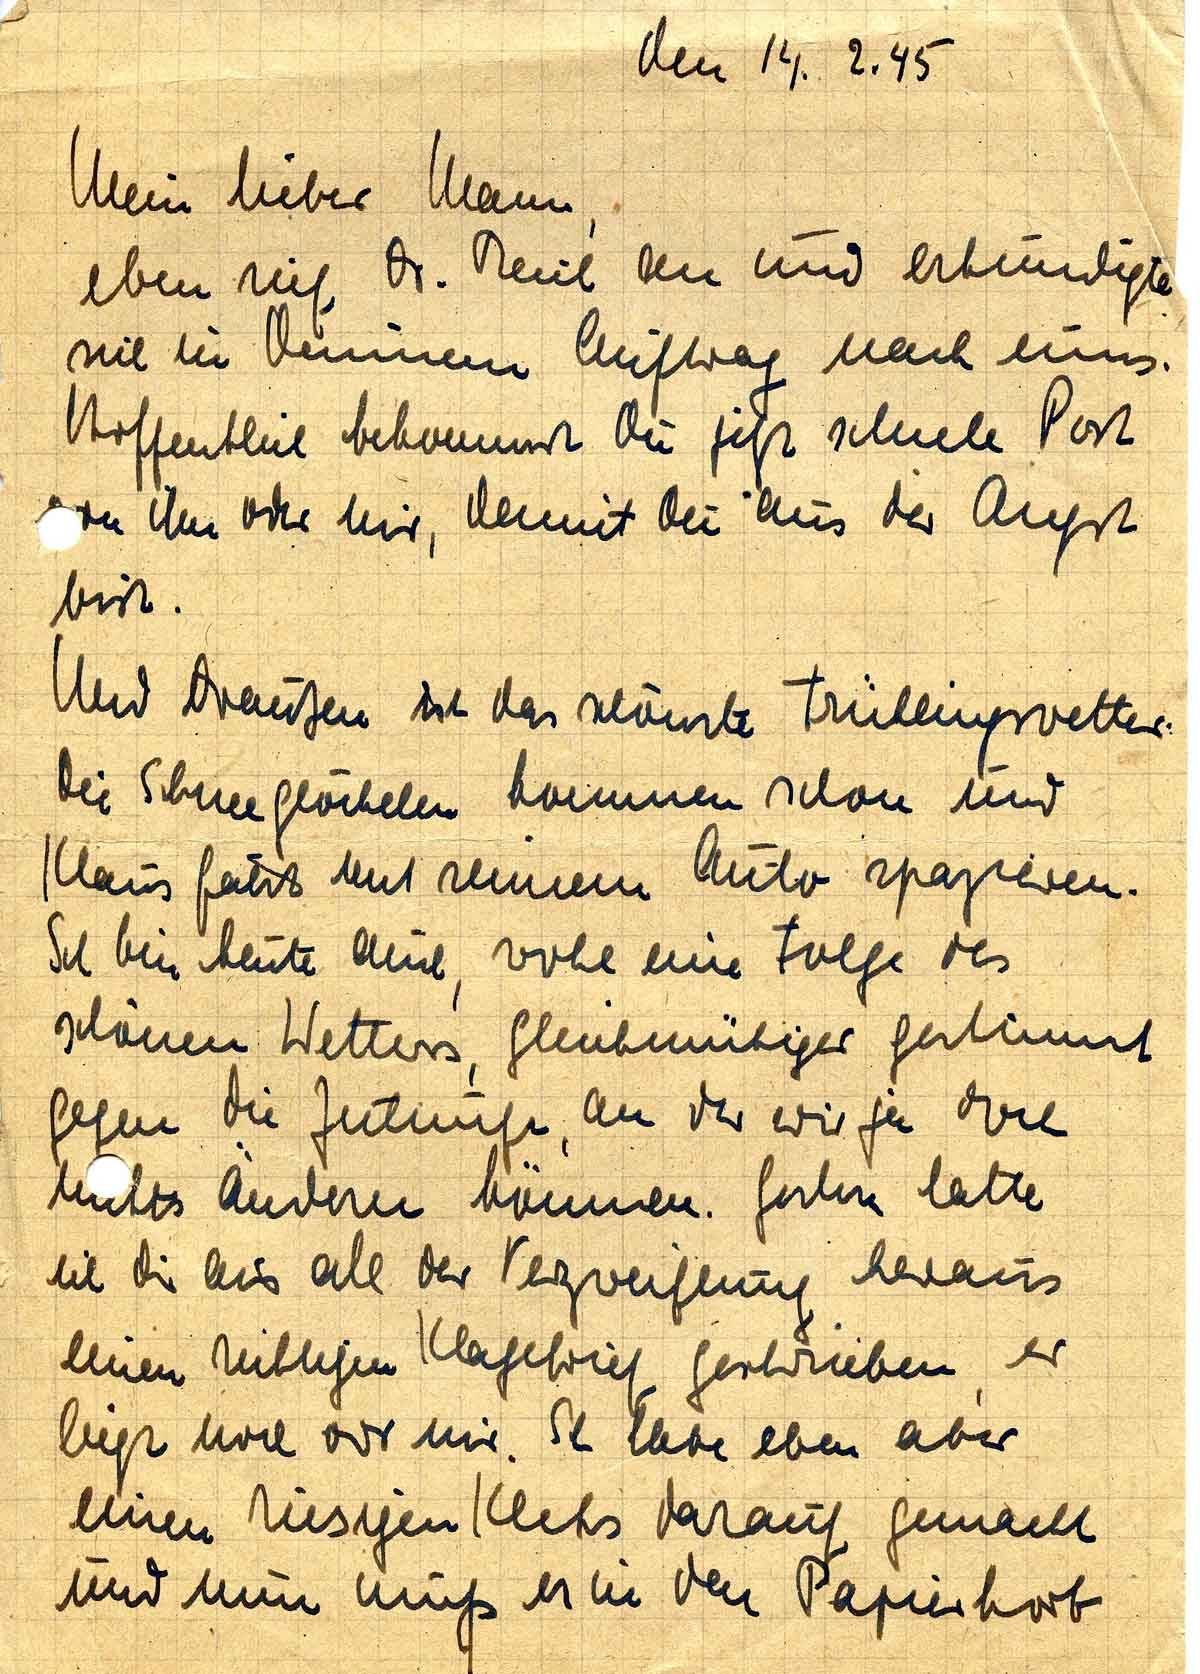 den 14. 2. 45
Mein lieber Mann,
eben rief Dr. an und erkundigte
sich in Deinem Auftrag nach uns.
Hoffentlich bekommst Du jetzt schnell Post
von ihm oder mir, damit Du aus der Angst
bist.
Und draußen ist das schönste Frühlingswetter.
Die Schneeglöckchen kommen schon und
Klaus fährt mit seinem Auto spazieren.
Ich bin heute auch, wohl eine Folge des
schönen Wetters, gleichmütiger gestimmt
gegen die, an der wir ja doch
nichts ändern können. Gestern hatte
ich Dir aus all der Verzweiflung heraus
einen richtigen Klagebrief geschrieben, er
liegt noch vor mir. Ich habe eben aber
einen riesigen Klecks darauf gemacht
und nun muß er in den Papierkorb